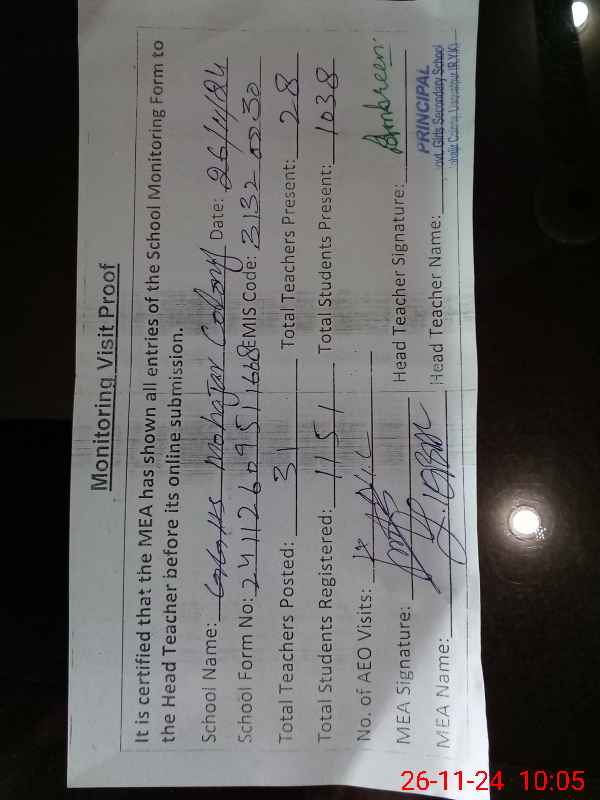 Monitoring Visit Proof
It is certified that the MEA has shown all entries of the School Monitoring Form to
the Head Teacher before its online submission.
School Name: Mohajar Colony Date: 26/11/24
School Form No: EMIS Code: 31320230
Total Teachers Posted: 31 Total Teachers Present: 28
Total Students Registered: 1151 Total Students Present: 1038
No. of AEO Visits:
MEA Signature: Head Teacher Signature: Ambreen
MEA Name: Head Teacher Name:
PRINCIPAL
Govt. Girls Secondary School
26-11-24 10:05